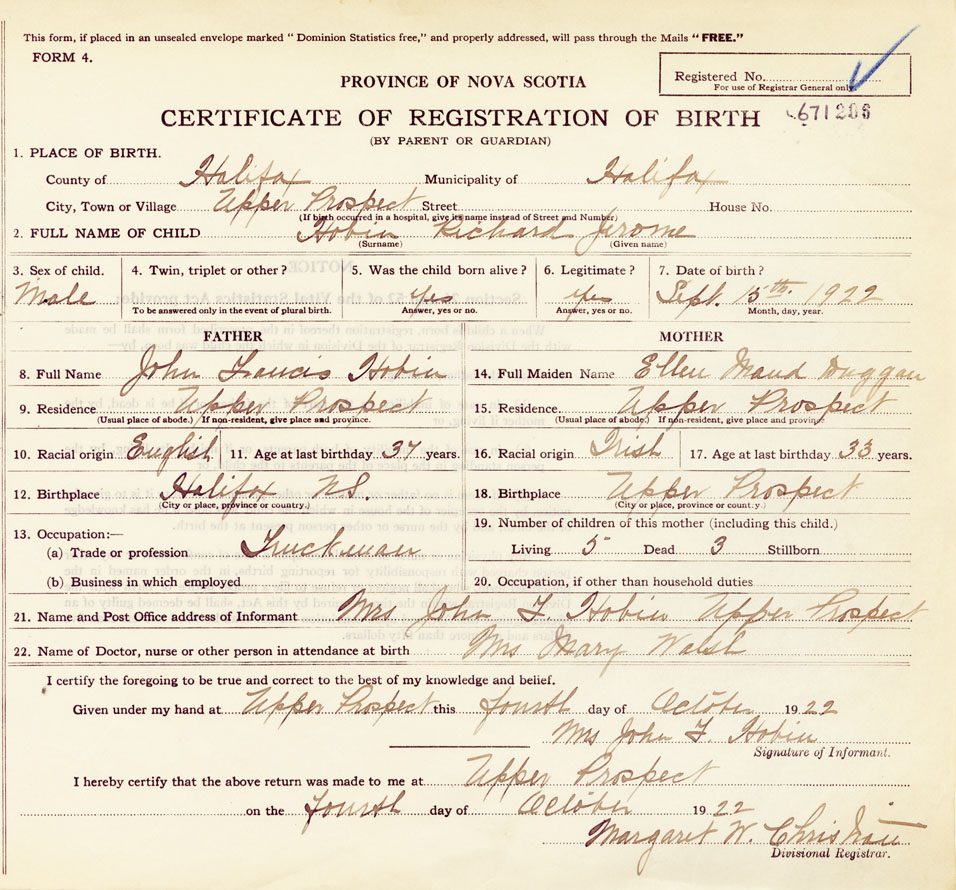 This form, if placed in an unsealed envelope marked "Dominion Statistics free," and properly addressed, will pass through the Mails "FREE."
FORM 4.
PROVINCE OF NOVA SCOTIA
Registered No.
For use of Registrar General only.
671206
CERTIFICATE OF REGISTRATION OF BIRTH
(BY PARENT OR GUARDIAN)
1. PLACE OF BIRTH.
County of Halifax Municipality of Halifax
City, Town or Village Upper Prospect Street House No.
(If birth occurred in a hospital, give its name instead of Street and Number)
2. FULL NAME OF CHILD Hobin Richard Jerome
(Surname) (Given name)
3. Sex of child. 4. Twin, triplet or other? 5. Was the child born alive? 6. Legitimate? 7. Date of birth?
Male Yes Yes Sept. 15th. 1922
To be answered only in the event of plural birth. Answer, yes or no. Answer, yes or no. Month, day, year.
FATHER MOTHER
8. Full Name John Francis Hobin 14. Full Maiden Name Ellen Maud Duggan
9. Residence Upper Prospect 15. Residence Upper Prospect
(Usual place of abode.) If non-resident, give place and province. (Usual place of abode.) If non-resident, give place and province
10. Racial origin English 11. Age at last birthday 37 years. 16. Racial origin Irish 17. Age at last birthday 33 years.
12. Birthplace Halifax N.S. 18. Birthplace Upper Prospect
(City or place, province or country.) (City or place, province or country.)
13. Occupation:— 19. Number of children of this mother (including this child.)
(a) Trade or profession Truckman Living 5 Dead 3 Stillborn
(b) Business in which employed 20. Occupation, if other than household duties
21. Name and Post Office address of Informant Mrs John F. Hobin Upper Prospect
22. Name of Doctor, nurse or other person in attendance at birth Mrs Mary Walsh
I certify the foregoing to be true and correct to the best of my knowledge and belief.
Given under my hand at Upper Prospect this fourth day of October 1922
Mrs John F. Hobin
Signature of Informant.
I hereby certify that the above return was made to me at Upper Prospect
on the fourth day of October 1922
Margaret W. Christian
Divisional Registrar.